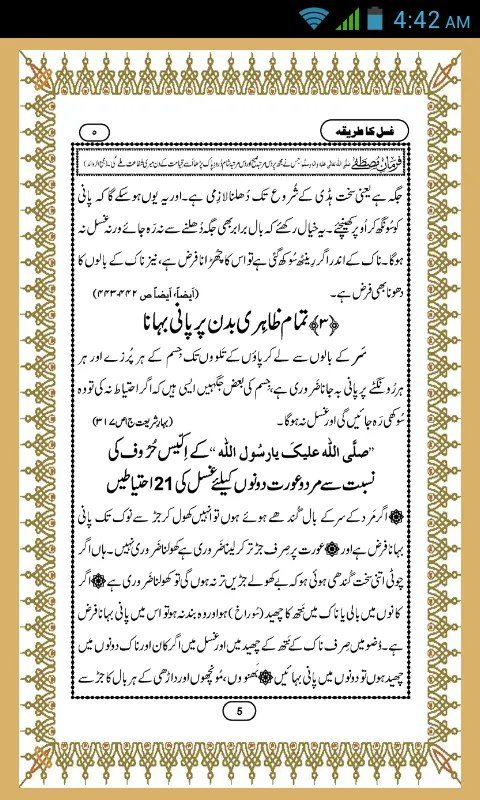 4:42 AM
غسل کا طریقہ
۵
فرمانِ مصطفٰے صلَّی اللہ تعالٰی علیہ واٰلہٖ وسلَّم: جس نے مجھ پر دس مرتبہ صبح اور دس مرتبہ شام دُرُود پاک پڑھا اُسے قیامت کے دن میری شفاعت ملے گی۔ (مجمع الزوائد)
جگہ ہے یعنی سخت ہڈی کے شُروع تک دُھلنا لازِمی ہے۔ اور یہ یوں ہو سکے گا کہ پانی
کو سونگھ کر اُوپر کھینچئے۔ یہ خیال رکھئے کہ بال برابر بھی جگہ دُھلنے سے نہ رَہ جائے ورنہ غسل نہ
ہوگا۔ ناک کے اندر اگر رِینٹھ سُوکھ گئی ہے تو اس کا چھُڑانا فرض ہے، نیز ناک کے بالوں کا
دھونا بھی فرض ہے۔ (اَیضاً، اَیضاً ص ۴۴۲،۴۴۳)
﴿۳﴾ تمام ظاہِری بدن پر پانی بہانا
سَر کے بالوں سے لے کر پاؤں کے تلووں تک جِسم کے ہر پُرزے اور ہر
ہر رُونگٹے پر پانی بہ جانا ضَروری ہے، جِسم کی بعض جگہیں ایسی ہیں کہ اگر احتیاط نہ کی تو وہ
سُوکھی رَہ جائیں گی اور غسل نہ ہوگا۔ (بہارِ شریعت ج۱ ص۳۱۷)
”صلَّی اللہ علیکَ یا رسُولَ اللہ“ کے اِکّیس حُرُوف کی
نسبت سے مرد و عورت دونوں کیلئے غسل کی 21 احتیاطیں
اگر مَرد کے سر کے بال گُندھے ہوئے ہوں تو انہیں کھول کر جڑ سے نوک تک پانی
بہانا فرض ہے اور عورت پر صِرف جڑ تر کر لینا ضَروری ہے کھولنا ضَروری نہیں۔ ہاں اگر
چوٹی اتنی سخت گُندھی ہوئی ہو کہ بے کھولے جڑیں تر نہ ہوں گی تو کھولنا ضَروری ہے اگر
کانوں میں بالی یا ناک میں نتھ کا چھید (سُوراخ) ہو اور وہ بند نہ ہو تو اس میں پانی بہانا فرض
ہے۔ وُضو میں صِرف ناک کے نتھ کے چھید میں اور غسل میں اگر کان اور ناک دونوں میں
چھید ہوں تو دونوں میں پانی بہائیں بَھنووں، مُونچھوں اور داڑھی کے ہر بال کا جڑ سے
5